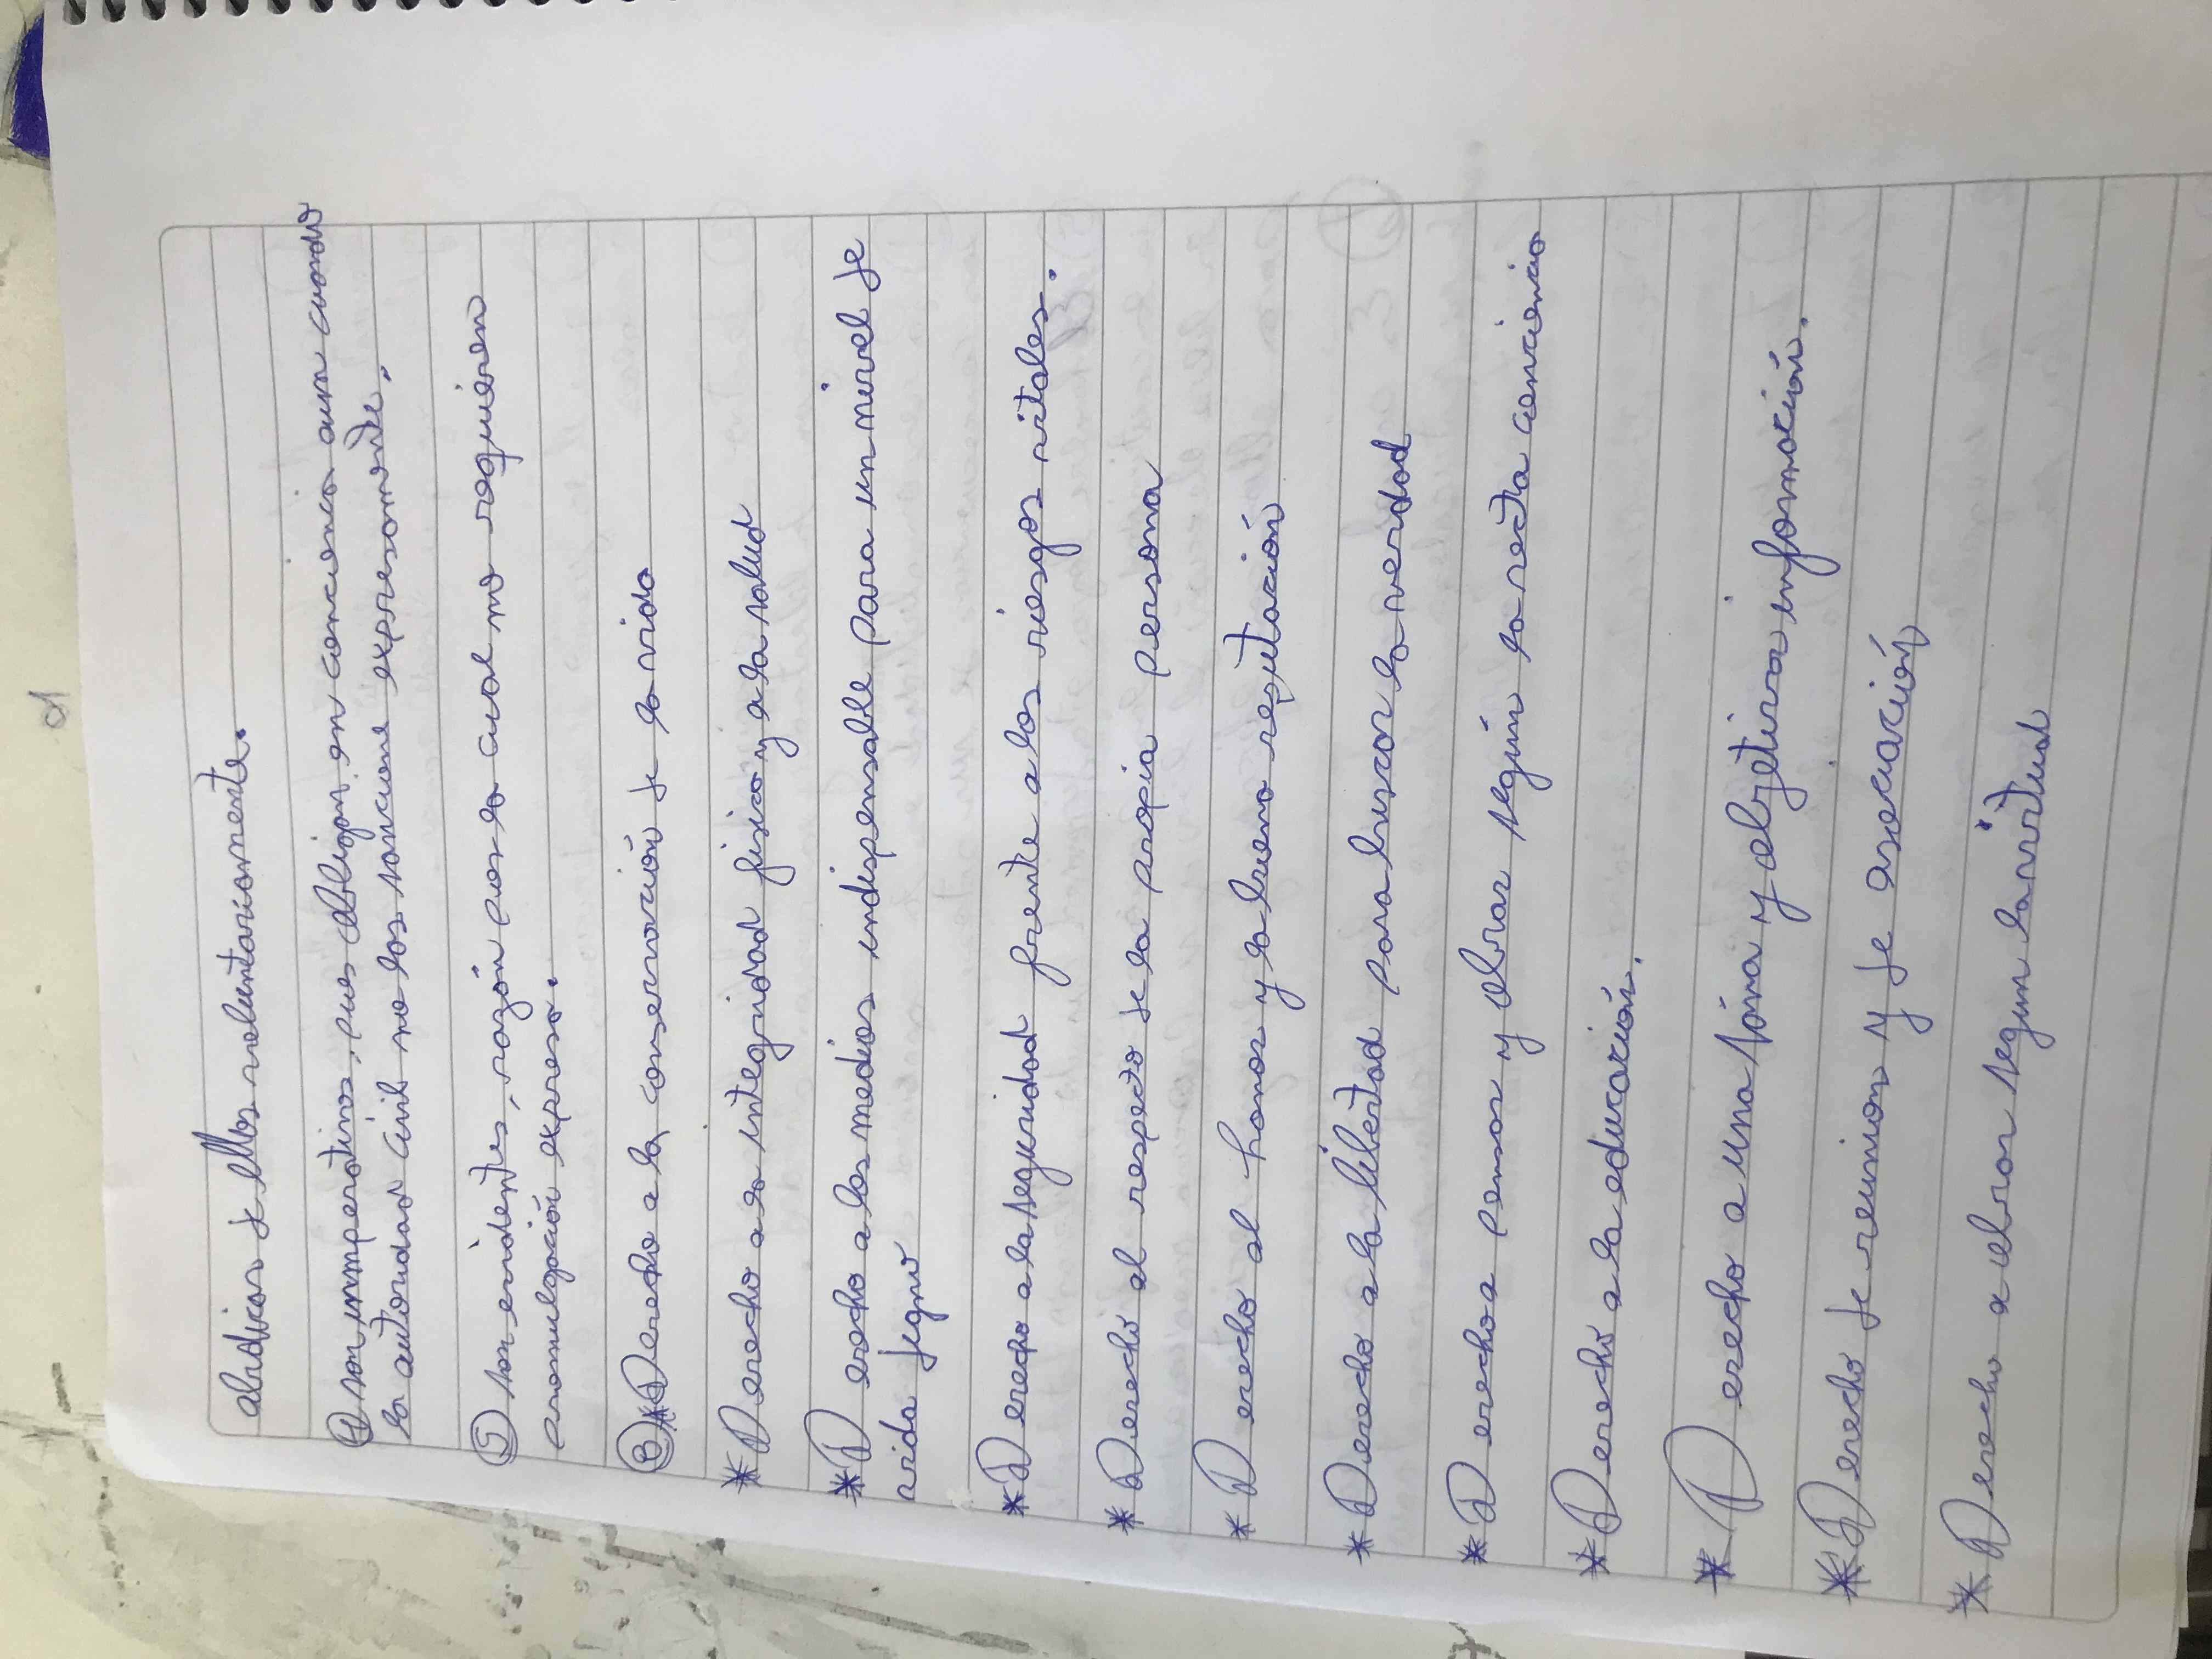 abdicar de ellos voluntariamente.
④ son imperativos, pues obligan en conciencia aun cuando
la autoridad civil no los sancione expresamente.
⑤ son evidentes, razón por la cual no requieren
promulgación expresa.
⑧ * Derecho a la conservación de la vida
* Derecho a la integridad física y a la salud
* Derecho a los medios indispensable para un nivel de
vida digno
* Derecho a la seguridad frente a los riesgos vitales.
* Derecho al respecto de la propia persona
* Derecho al honor y la buena reputación
* Derecho a la libertad para buscar la verdad
* Derecho a pensar y obrar según la recta conciencia
* Derecho a la educación.
* Derecho a una sána y objetiva información.
* Derecho de reunion y de asociación
* Derecho a obrar segun la virtud